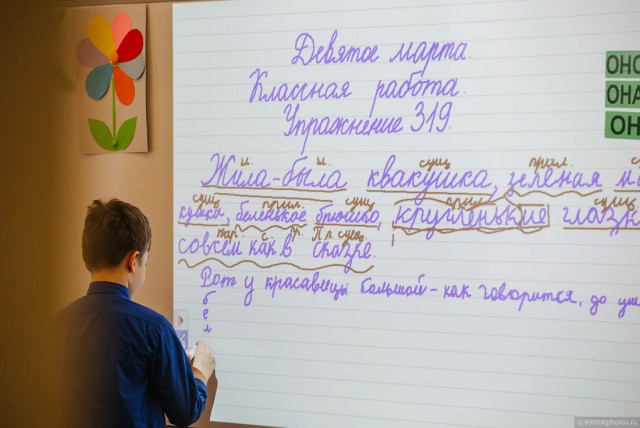 Девятое марта.
Классная работа.
Упражнение 319.
ОНО
ОНА
ОН
сущ прил.
Жила-была квакушка, зелёная
сущ. прил. сущ прил. сущ
кушка, беленькое брюшко, кругленькие глазк
нар. с. П.п. сущ.
совсем как в сказке.
Рот у красавицы большой - как говорится, до уш
б
е
л
© vostokphotos.ru